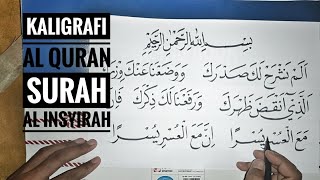 KALIGRAFI
AL QURAN
SURAH
AL INSYIRAH
بسم الله الرحمن الرحيم
ألم نشرح لك صدرك ووضعنا عنك وزر
الذي أنقض ظهرك ورفعنا لك ذكرك فإن
مع العسر يسرا إن مع العسر يسرا